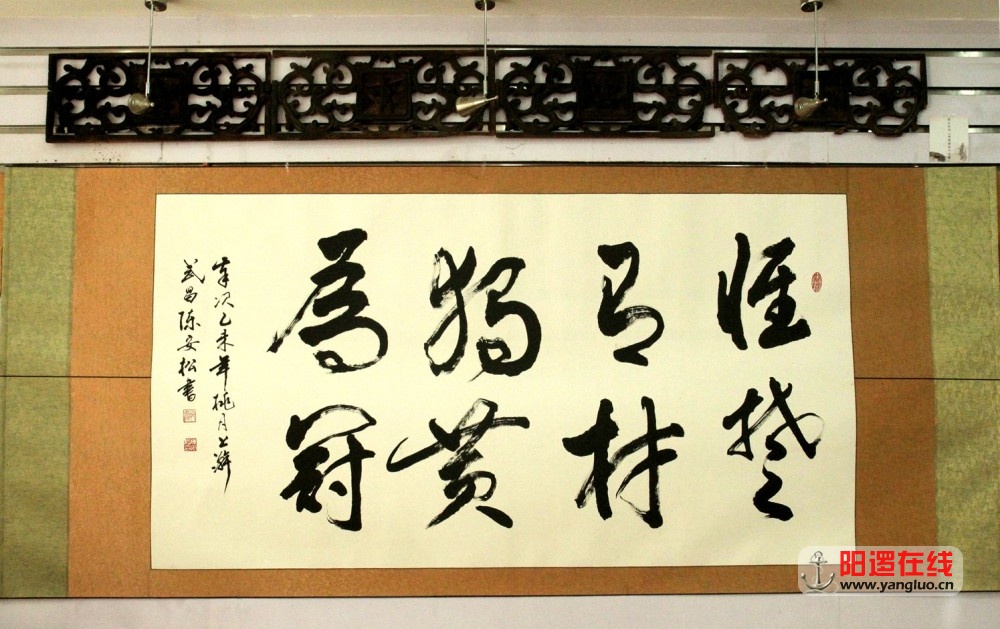 惟楚
有材
独黄
為冠
岁次乙未年桃月上澣
武昌陈安松書
阳逻在线
www.yangluo.cn